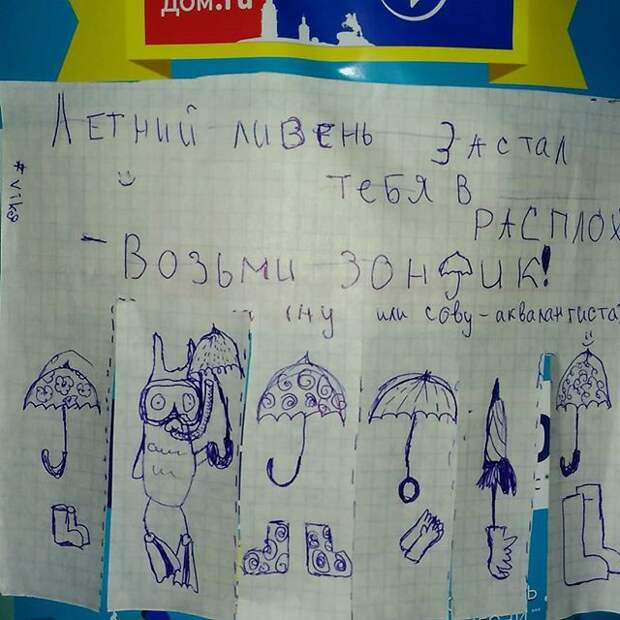 ДОМ.ru
ЛЕТНИЙ ЛИВЕНЬ ЗАСТАЛ
ТЕБЯ В
РАСПЛОХ
- ВОЗЬМИ ЗОНТИК!
ну или сову-аквалангиста
#viks